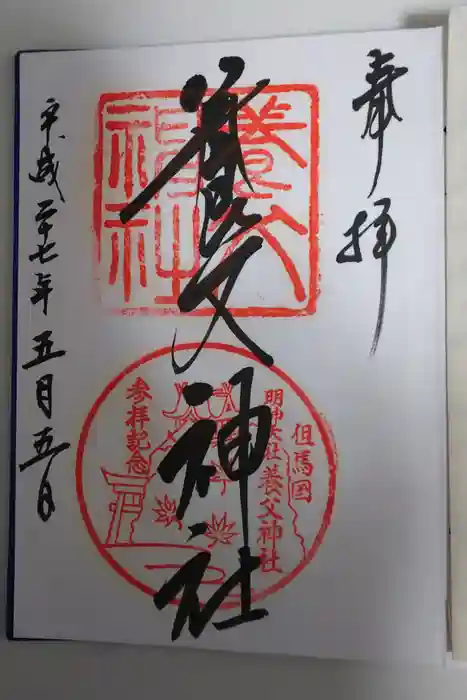 奉拝
養父神社
平成二十七年五月五日
養父神社
但馬国
明神大社養父神社
参拝記念